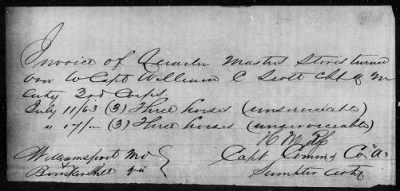 Invoice of Quarter Masters Stores turned
over to Capt William C Scott Chf Q M
Arty 2nd Corps.
July 11/63 (3) Three horses (unserviceable)
" 17/" (3) Three horses (unserviceable)
H M
Capt Commg Co "A"
Williamsport Md
Sumpter Arty
Bunkerhill Va